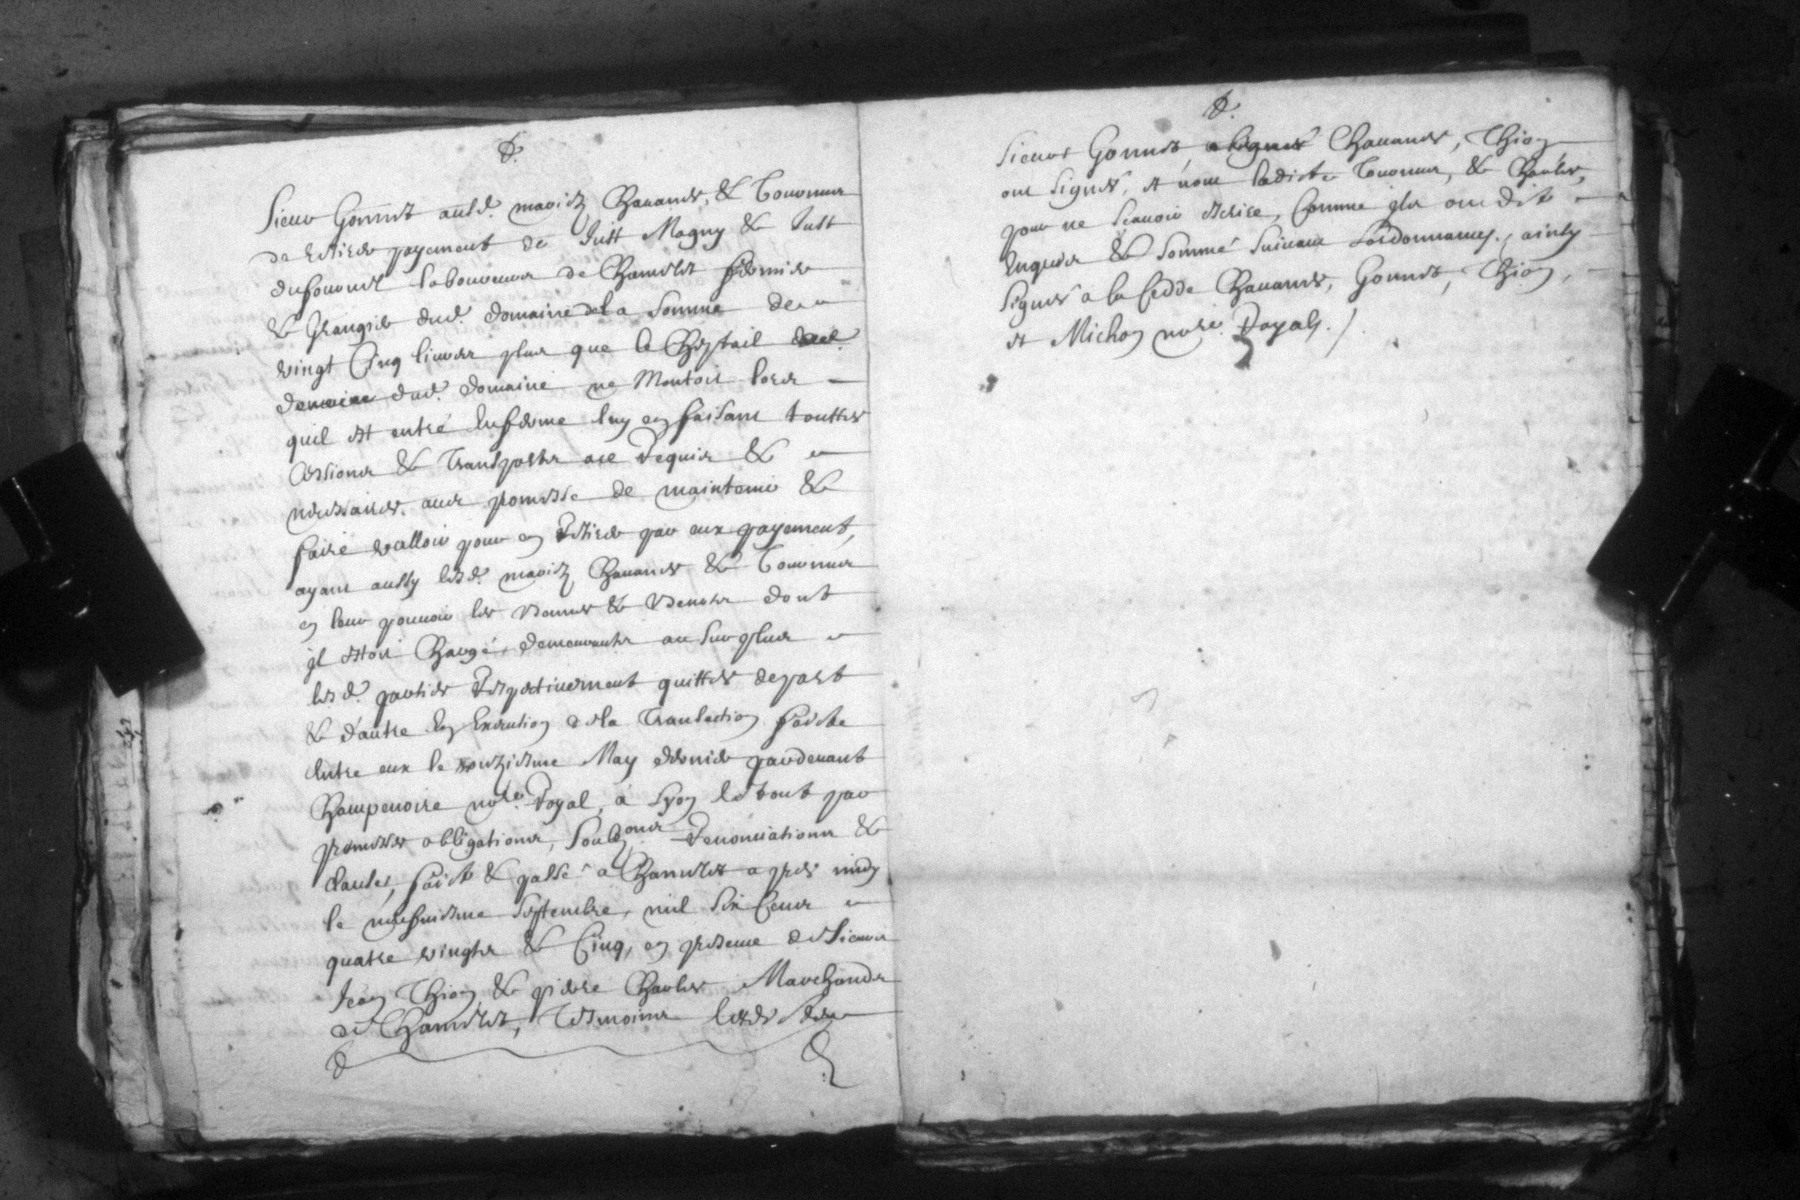 Sieur Gonnet ausd. mariez Chavanes, & Tournieu
de retirer payement de Just Magny & Just
Dufournel laboureurs de Chamelet fermier
& Grangier dud. domaine de la somme de
vingt Cinq livres plus que le Cheptail
dud. domaine ne Montoit lors
quil est entré En ferme luy en faisant touttes
Cessions & Transportz ace requis &
necessaires, avec promesse de maintenir &
faire valloir pour en retirer par eux payement,
ayant aussy lesd. mariez Chavanes &
en leur pouvoir les & dont
il estoit Chargé, demeurantz au surplus
lesd. parties respectivement quittes de part
& d'autre En Execution de la Transaction faicte
Entre eux le May dernier pardevant
Champenoire nore. Royal, a Lyon Le tout par
promesses obligations, renonciations &
clauses, faict & passé a Chamelet apres midy
le neufviesme Septembre, mil six Cens
quatre vingtz & Cinq, en presence de Sieurs
Jean Thion & pierre Charles Marchands
de Chamelet, Tesmoins
Sieurs Gonnet, Chavanes, Thion
ont signés, et non ladicte & Charles,
pour ne sçavoir escrire, Comme ils ont dit
Enquis & sommé suivant Lordonnances, ainsy
signés a la Cedde Chavanes, Gonnet, Thion,
et Michon nore. Royal. /.